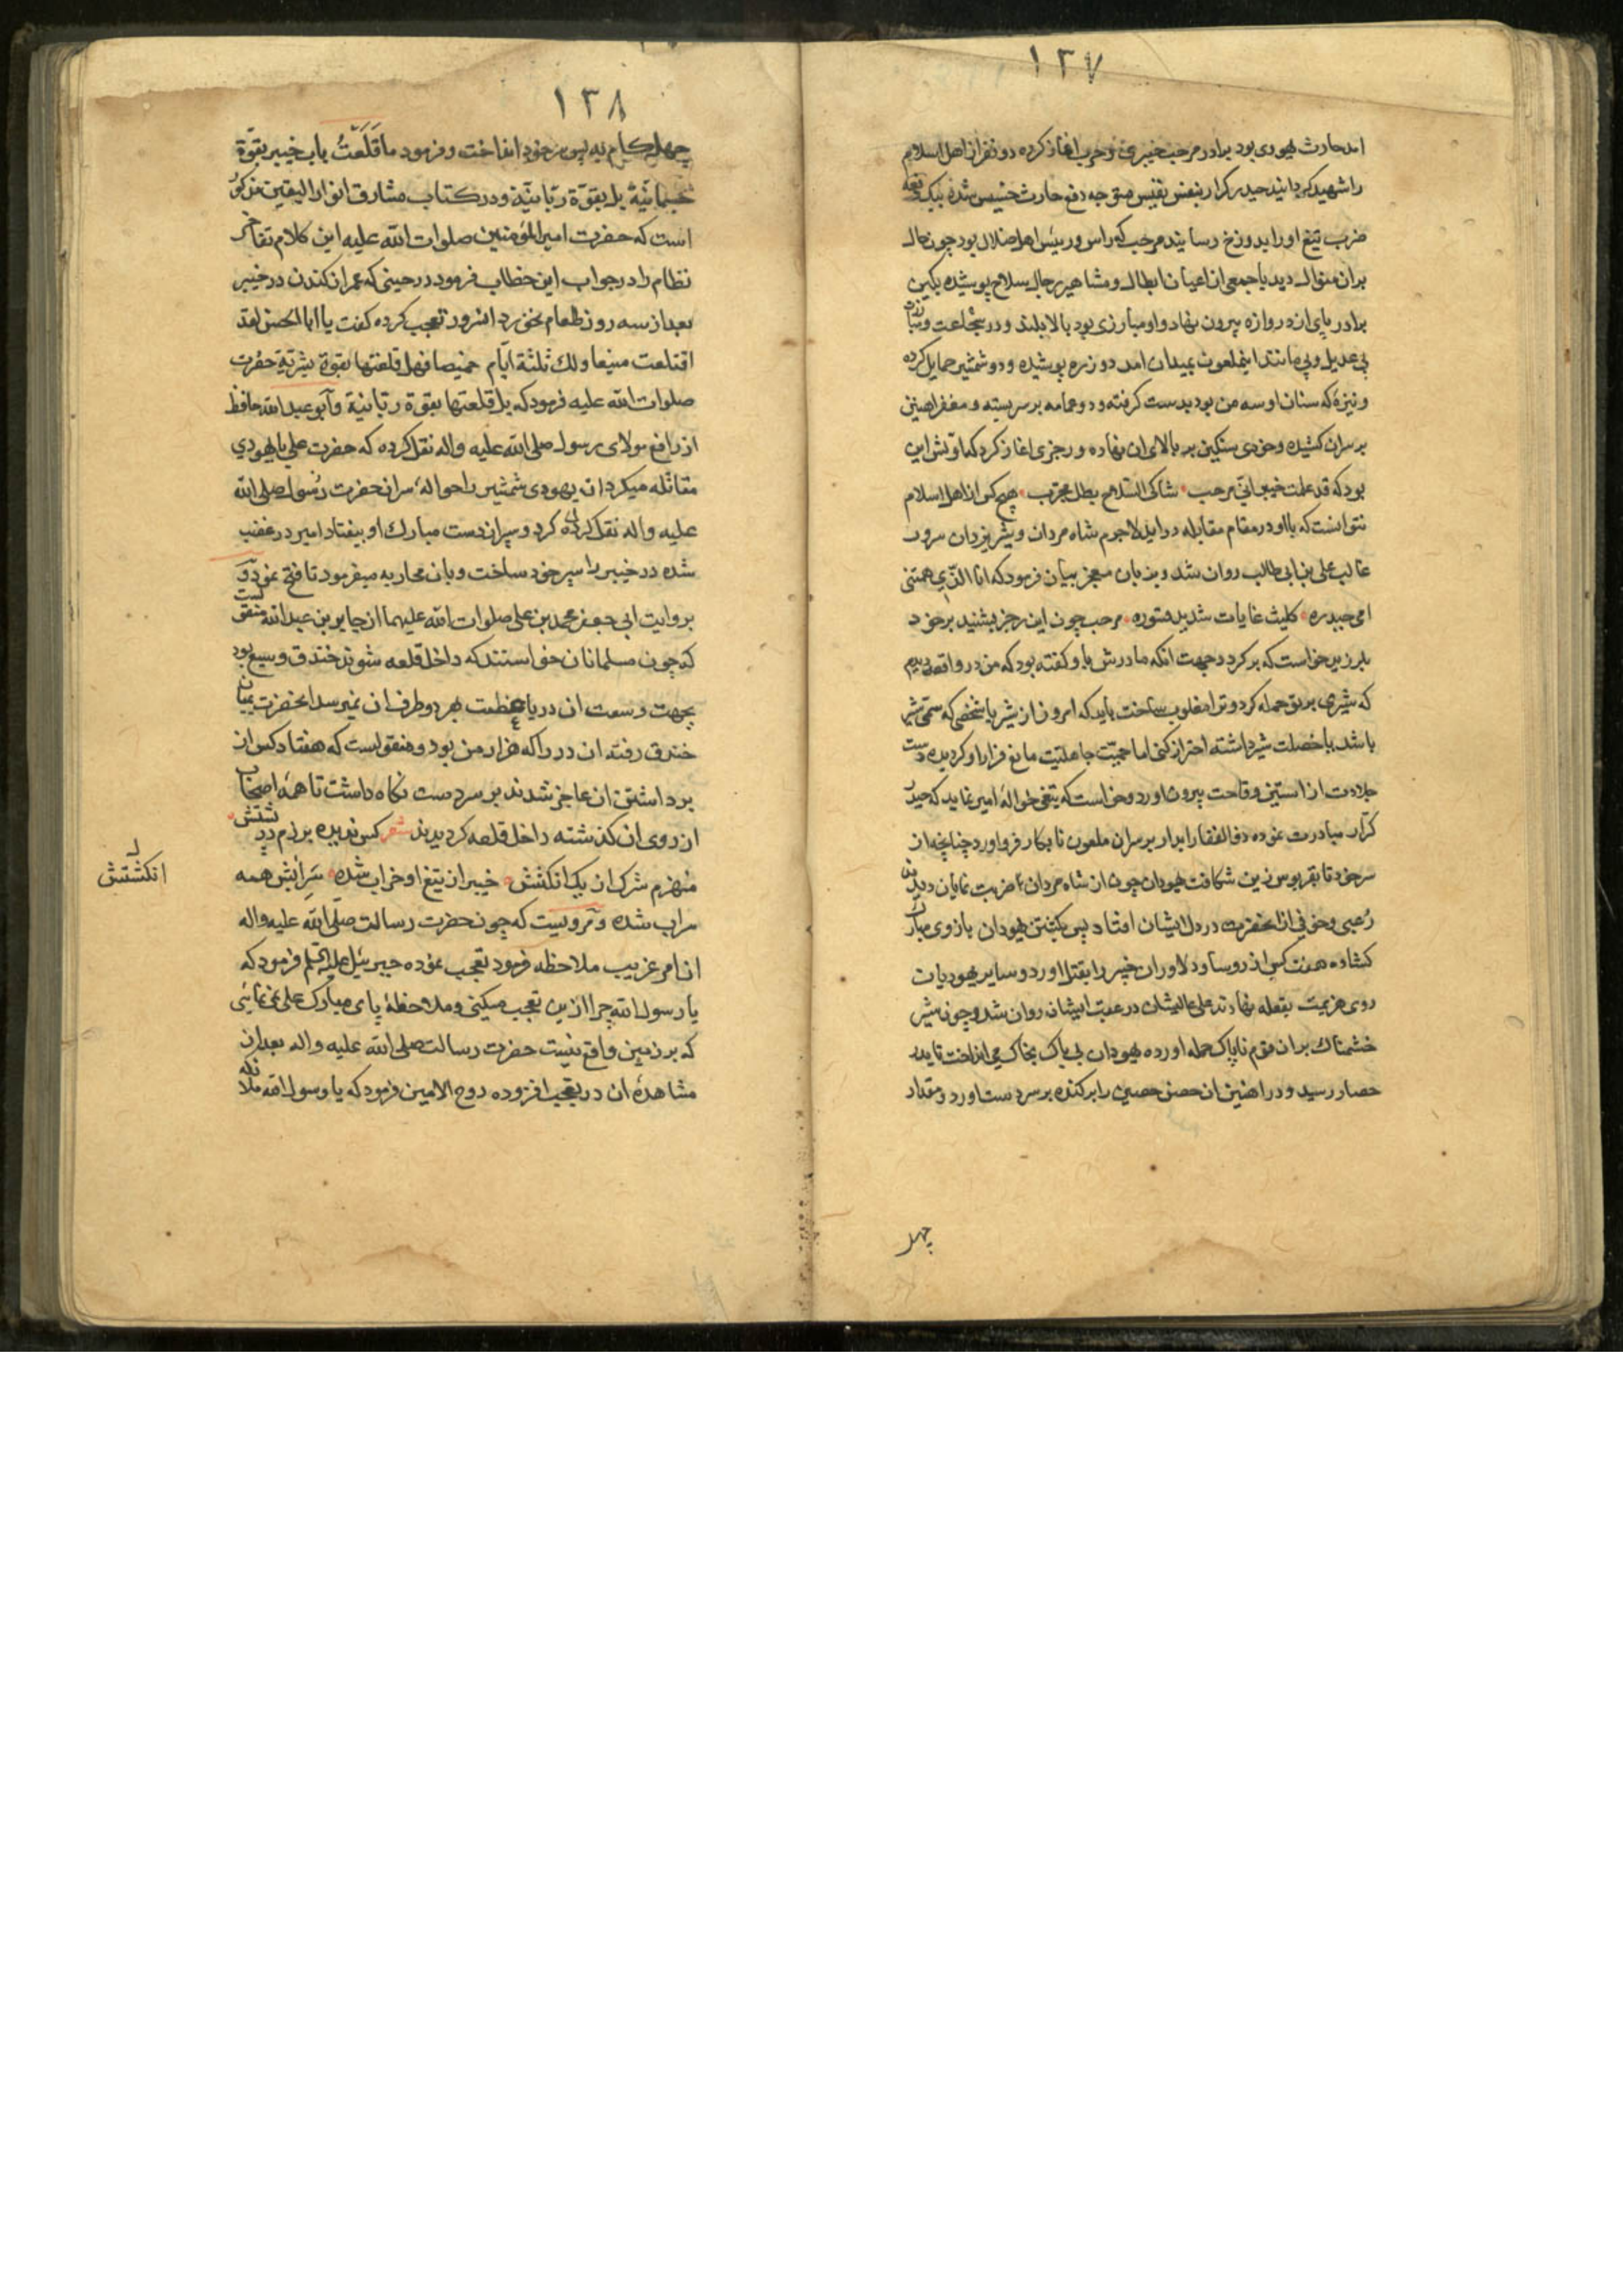 ۱۳۷
امد حارث یهودی بود برادر مرحب خیبری و حرب اغاز کرده دو نفر از اهل اسلام
را شهید کردانید حیدر کرار بنفس نفیس متوجه دفع حارث خسیس شده بیک دفعه
ضرب تیغ او را بدوزخ رسانید مرحب که راس و رییس اهل ضلال بود چون حال
بران منوال دید با جمعی از اعیان ابطال و مشاهیر رجال سلاح پوشیده بکین
برادر پای از دروازه بیرون نهاد و او مبارزی بود بالا بلند و در شجاعت و نبرد
بی عدیل و بی مانند انملعون بمیدان امد دو زره پوشیده و دو شمشیر حمایل کرده
و نیزه که سنان او سه من بود بدست کرفته و دو عمامه بر سر بسته و مغفر اهنین
بر سران کشیده و خودی سنکین بر بالای ان نهاده و رجزی اغاز کرد که اولش این
بود که قد علمت خیبر انی مرحب شاکی السلاح بطل مجرب هیچ کس از اهل اسلام
نتوانست که با او در مقام مقابله درآید لاجرم شاه مردان و شیر یزدان سرور
غالب علی بن ابی طالب روان شد و بزبان معجز بیان فرمود که انا الذی سمتنی
امی حیدره کلیث غابات شدید قسوره مرحب چون این رجز بشنید بر خود
بلرزید خواست که برکردد جهت انکه مادرش باو کفته بود که من در واقعه دیدم
که شیری بر تو حمله کرد و ترا مغلوب ساخت باید که امروز از شیر یا شخصی که سمی شیر
باشد یا خصلت شیر داشته احتراز کنی اما حمیت جاهلیت مانع فرار او کردیده دست
جلادت از استین وقاحت بیرون اورد و خواست که تیغی حوالهٔ امیر نماید که حیدر
کرار مبادرت نموده ذوالفقار ابدار بر سران ملعون نابکار فرو اورد چنانچه از
سر خود تا بقربوس زین شکافت یهودان چون از شاه مردان ضربت نمایان دیدند
رعبی و خوفی از انحضرت در دل ایشان افتاد پس بکشتن یهودان بازوی مبارک
کشاده هفت کس از روسا و دلاوران خیبر را بقتل اورد و سایر یهودیان
روی هزیمت بقلعه نهادند علی عالیشان در عقب ایشان روان شد و چون شیر
خشمناک بران قوم ناپاک حمله اورده یهودان بی باک بخاک می انداخت تا بدر
حصار رسید و در اهنین ان حصن حصین را برکنده بر سر دست اورد و مقدار
چهل
۱۳۸
چهل کام به پس سر خود انداخت و فرمود ما قَلَعتُ باب خیبر بقوة
جسمانیّة بل بقوّة ربّانیّة و در کتاب مشارق انوار الیقین مذکور
است که حضرت امیر المؤمنین صلوات الله علیه این کلام تفاخر
نظام را در جواب این خطاب فرمود در حینی که عمر ان کندن در خیبر
بعد از سه روز طعام نخورد انسرور تعجب کرده کفت یا ابا الحسن لقد
اقتلعت منیعا ولك ثلثة ایّام خمیصا فهل قلعتها بقوة بشریّة حضرت
صلوات الله علیه فرمود که بل قلعتها بقوة ربانیة و ابو عبد الله حافظ
از رافع مولای رسول صلی الله علیه و اله نقل کرده که حضرت علی با یهودی
مقاتله میکرد ان یهودی شمشیر را حوالهٔ سر انحضرت رسول صلی الله
علیه و اله نقل کرده کرد و سپر از دست مبارک او بیفتاد امیر در غضب
شده در خیبر را سپر خود ساخت و بان محاربه میفرمود تا فتح نمود و
بروایت ابی جعفر محمد بن علی صلوات الله علیهما از جابر بن عبد الله منقولست
که چون مسلمانان خواستند که داخل قلعه شوند خندق وسیع بود
بجهت وسعت ان در با عظمت بهر دو طرف ان نمیرسد انحضرت بمیان
خندق رفته ان در را که هزار من بود و منقولست که هفتاد کس از
برداشتن ان عاجز شدند بر سر دست نکاه داشت تا همه اصحاب
از روی ان کذشته داخل قلعه کردیدند شعر کس ندیده بر زمزم
منهزم شرک از یک انکشش خیبر از تیغ او خراب شده سرابش همه
سراب شده و مرویست که چون حضرت رسالت صلی الله علیه و اله
ان امر غریب ملاحظه فرمود تعجب نموده جبرییل علیه السلم فرمود که
یا رسول الله چرا ازین تعجب میکنی و ملاحظهٔ پای مبارک علی نمی نمائی
که بر زمین واقع نیست حضرت رسالت صلی الله علیه و اله بعد از
مشاهدهٔ ان در تعجب افزوده روح الامین فرمود که یا رسول الله ملائکه
انکشتش